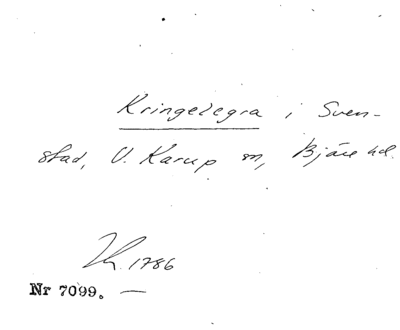 Kringelegra i Sven-
stad, V. Karup sn, Bjäre hd.
1786
Nr 7099. —